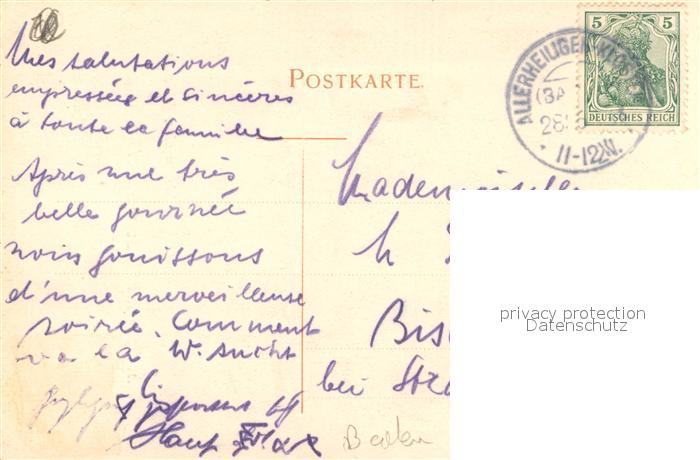 Mes salutations
empressées et sincères
à toute la famille
Après une très
belle journée
nous jouissons
d'une merveilleuse
soirée. Comment
va la W. sucht
POSTKARTE.
5 5
DEUTSCHES REICH
ALLERHEILIGEN-KLOSTER
(BA
28
11-12
Mademoiselle
Bis
bei Stra
privacy protection
Datenschutz
Baden